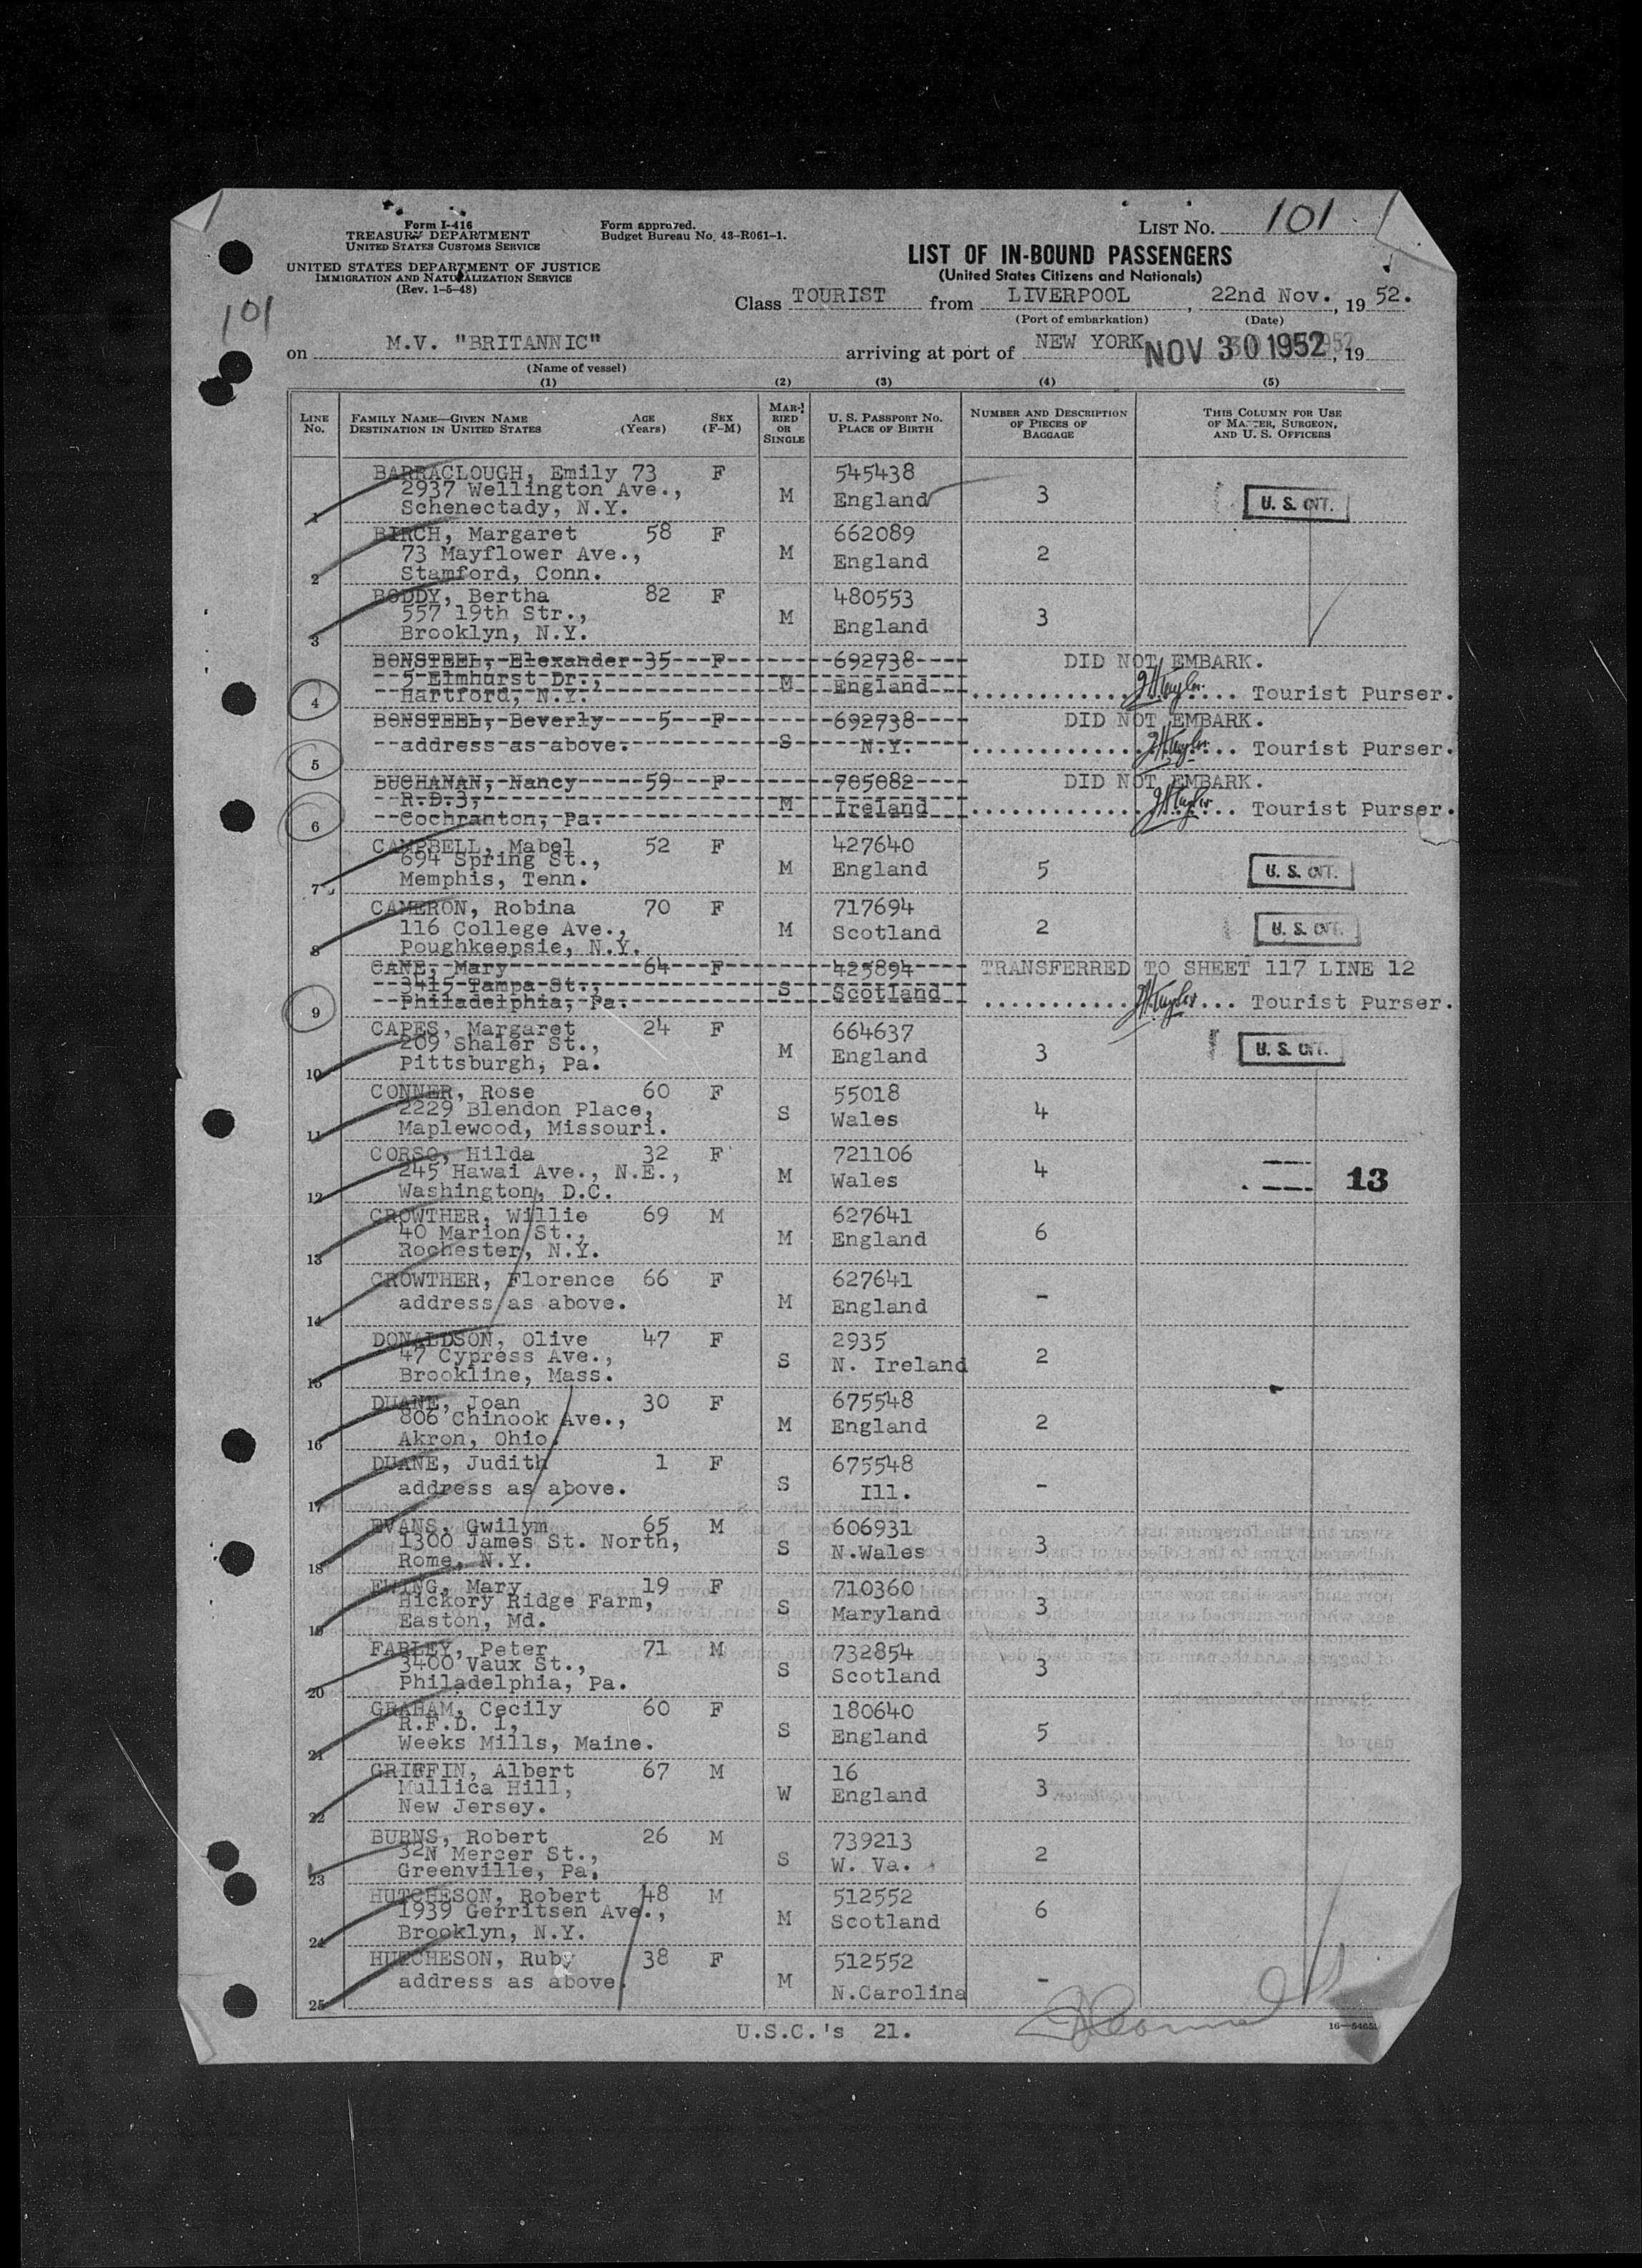 Form I-416
TREASURY DEPARTMENT
UNITED STATES CUSTOMS SERVICE
Form approved.
Budget Bureau No. 43-R061-1.
LIST NO. 101
UNITED STATES DEPARTMENT OF JUSTICE
IMMIGRATION AND NATURALIZATION SERVICE
(Rev. 1-5-48)
LIST OF IN-BOUND PASSENGERS
(United States Citizens and Nationals)
101
Class TOURIST from LIVERPOOL, 22nd Nov., 19 52.
(Port of embarkation) (Date)
on M.V. "BRITANNIC" arriving at port of NEW YORK NOV 30 1952, 19
(Name of vessel)
(1) (2) (3) (4) (5)
LINE No. FAMILY NAME—GIVEN NAME DESTINATION IN UNITED STATES AGE (Years) SEX (F-M) MARRIED OR SINGLE U. S. PASSPORT NO. PLACE OF BIRTH NUMBER AND DESCRIPTION OF PIECES OF BAGGAGE THIS COLUMN FOR USE OF MASTER, SURGEON, AND U. S. OFFICERS
BARRACLOUGH, Emily 73 F 545438
2937 Wellington Ave., M England 3 U. S. CIT.
1 Schenectady, N.Y.
BIRCH, Margaret 58 F 662089
73 Mayflower Ave., M England 2
2 Stamford, Conn.
BODDY, Bertha 82 F 480553
557 19th Str., M England 3
3 Brooklyn, N.Y.
BONSTEEL, Elexander 35 F 692738 DID NOT EMBARK.
5 Elmhurst Dr., M England
4 Hartford, N.Y. Tourist Purser.
BONSTEEL, Beverly 5 F 692738 DID NOT EMBARK.
address as above. S N.Y. Tourist Purser.
5
BUCHANAN, Nancy 59 F 705082 DID NOT EMBARK.
R.D.3, M Ireland Tourist Purser.
6 Cochranton, Pa.
CAMPBELL, Mabel 52 F 427640
694 Spring St., M England 5 U. S. CIT.
7 Memphis, Tenn.
CAMERON, Robina 70 F 717694
116 College Ave., M Scotland 2 U. S. CIT.
8 Poughkeepsie, N.Y.
CANE, Mary 64 F 425894 TRANSFERRED TO SHEET 117 LINE 12
3415 Tampa St., S Scotland
9 Philadelphia, Pa. Tourist Purser.
CAPES, Margaret 24 F 664637
209 Shaler St., M England 3 U. S. CIT.
10 Pittsburgh, Pa.
CONNER, Rose 60 F 55018
2229 Blendon Place, S Wales 4
11 Maplewood, Missouri.
CORSO, Hilda 32 F 721106
245 Hawai Ave., N.E., M Wales 4 13
12 Washington, D.C.
CROWTHER, Willie 69 M 627641
40 Marion St., M England 6
13 Rochester, N.Y.
CROWTHER, Florence 66 F 627641
address as above. M England -
14
DONALDSON, Olive 47 F 2935
47 Cypress Ave., S N. Ireland 2
15 Brookline, Mass.
DUANE, Joan 30 F 675548
806 Chinook Ave., M England 2
16 Akron, Ohio.
DUANE, Judith 1 F 675548
address as above. S Ill. -
17
EVANS, Gwilym 65 M 606931
1300 James St. North, S N.Wales 3
18 Rome, N.Y.
EWING, Mary 19 F 710360
Hickory Ridge Farm, S Maryland 3
19 Easton, Md.
FARLEY, Peter 71 M 732854
3400 Vaux St., S Scotland 3
20 Philadelphia, Pa.
GRAHAM, Cecily 60 F 180640
R.F.D. 1, S England 5
21 Weeks Mills, Maine.
GRIFFIN, Albert 67 M 16
Mullica Hill, W England 3
22 New Jersey.
BURNS, Robert 26 M 739213
32N Mercer St., S W. Va. 2
23 Greenville, Pa.
HUTCHESON, Robert 48 M 512552
1939 Gerritsen Ave., M Scotland 6
24 Brooklyn, N.Y.
HUTCHESON, Ruby 38 F 512552
address as above. M N.Carolina -
25
U.S.C.'s 21.